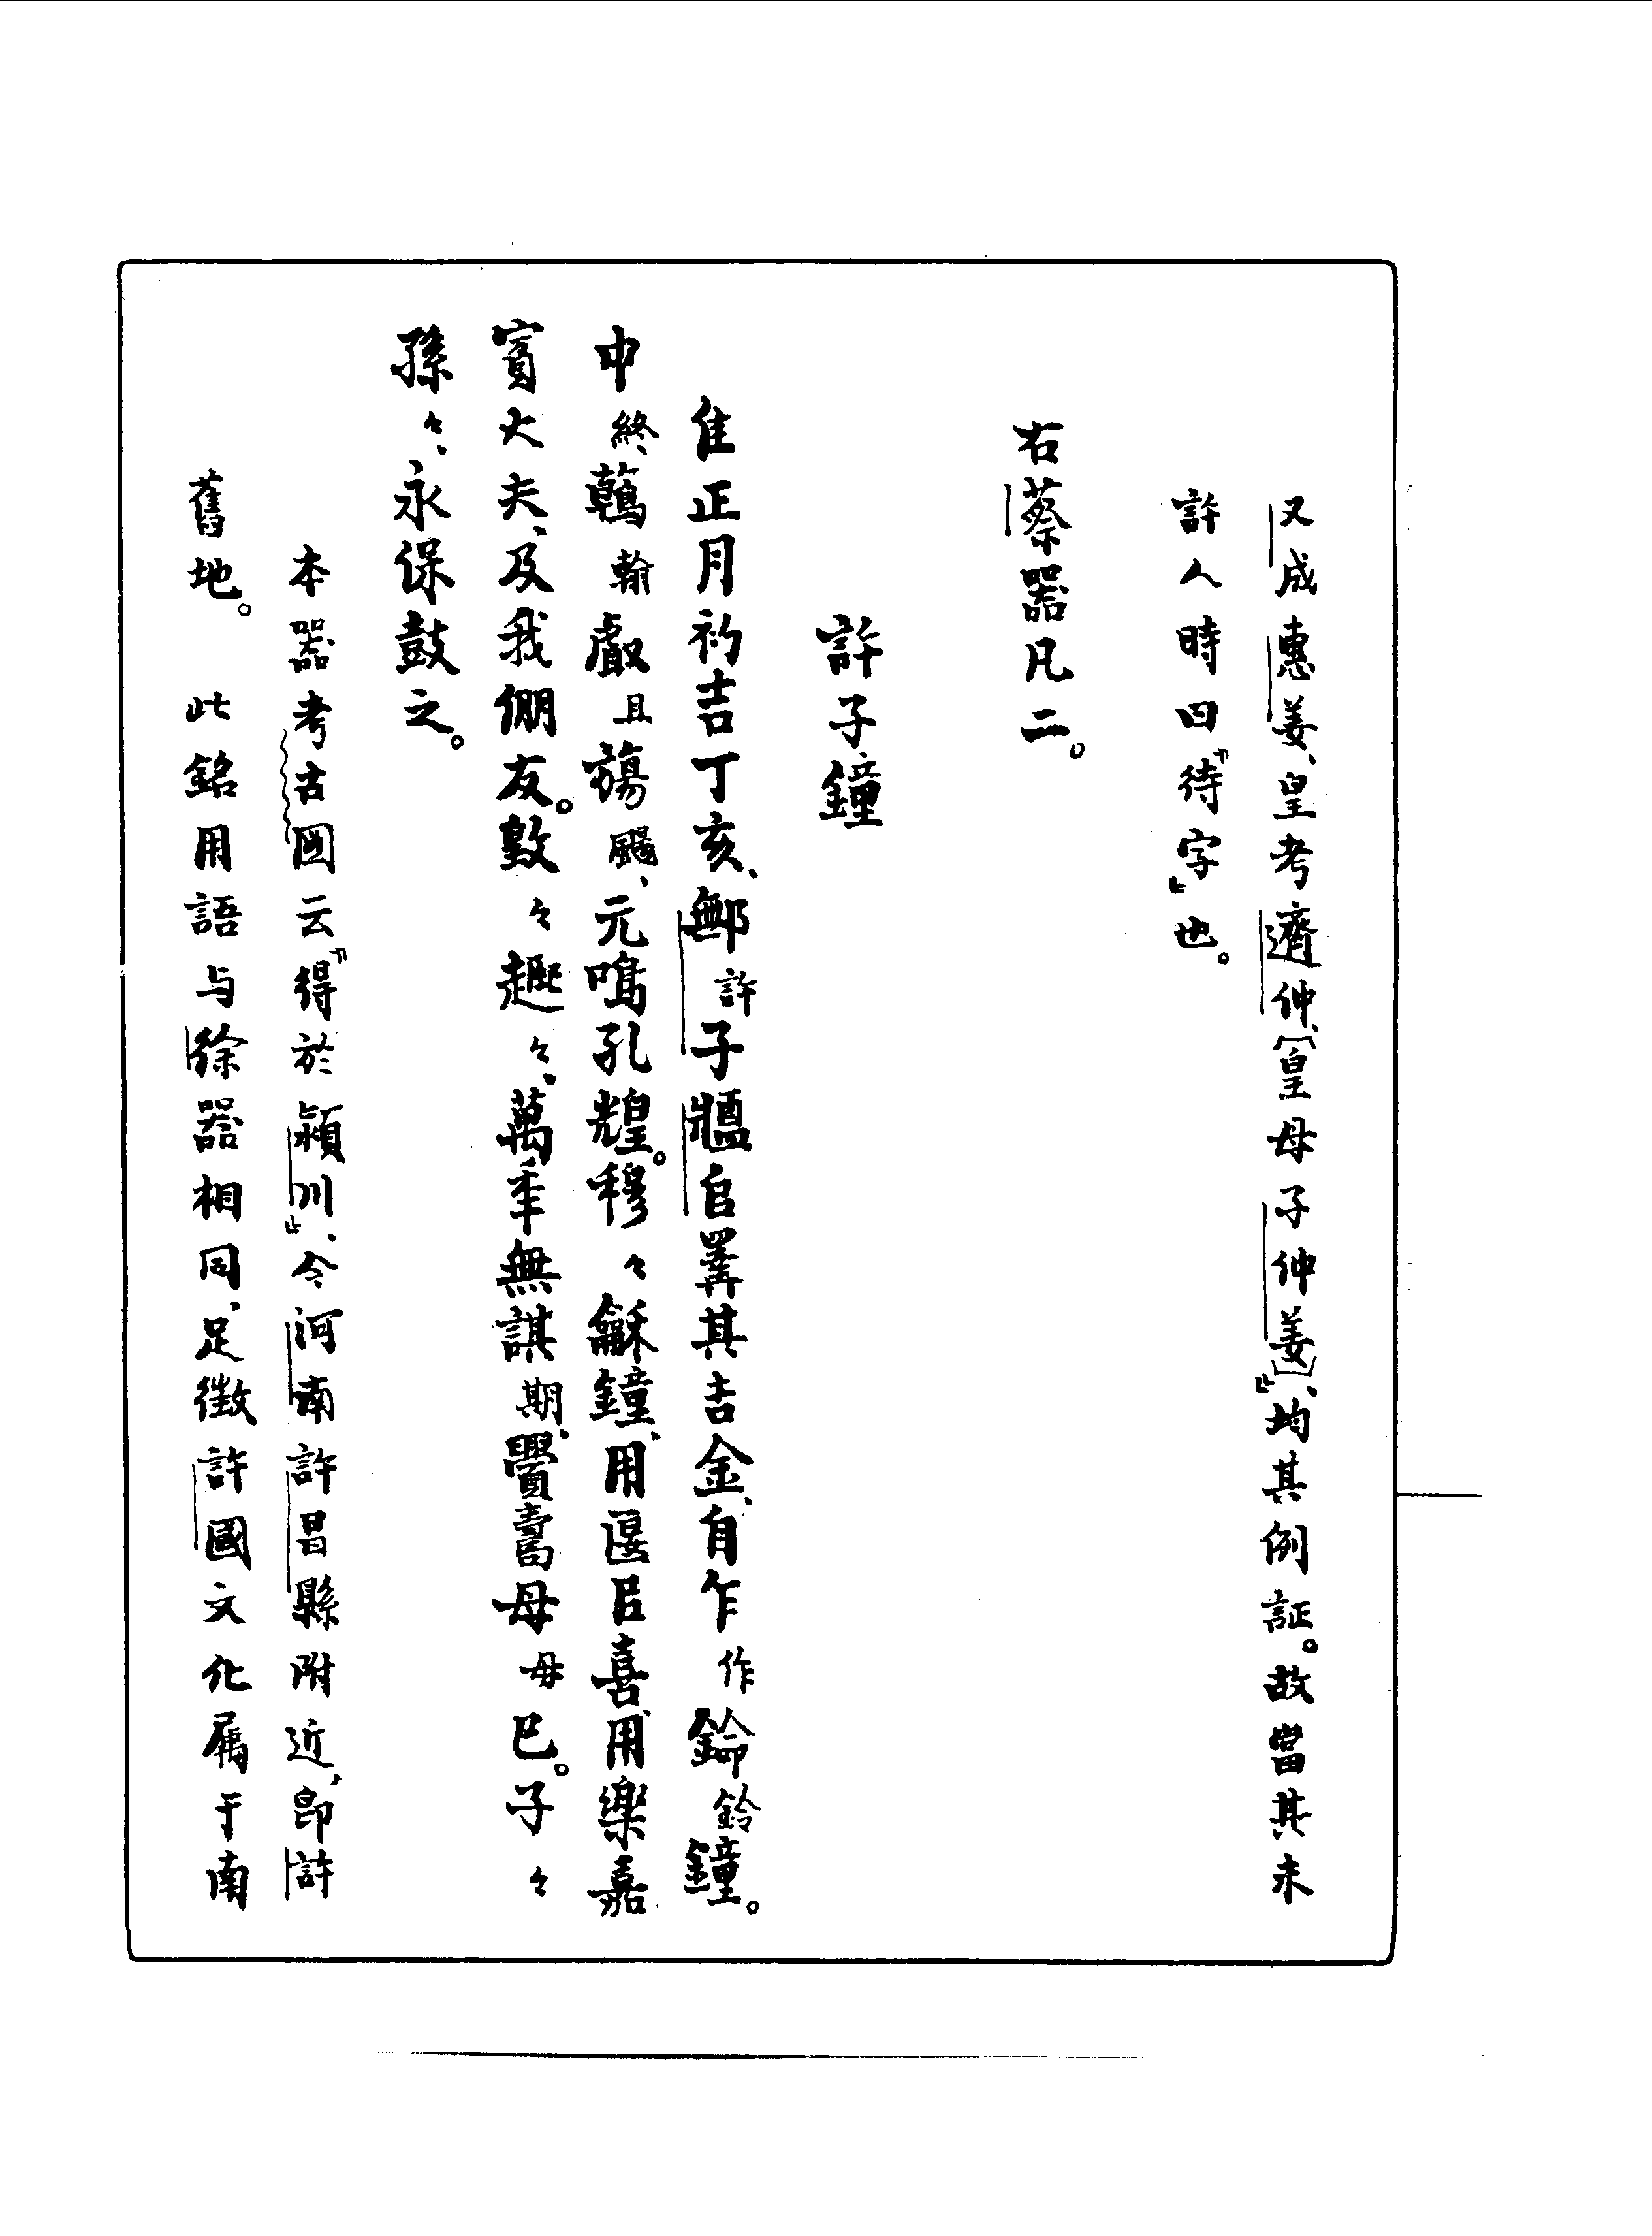 又成惠姜、皇考遹仲、〔皇母子仲姜〕』、均其例証。故當其未
許人時曰『待字』也。
右蔡器凡二。
許子鐘
隹正月初吉丁亥、鄦許子𤖣自𢍰其吉金、自乍作鈴鐘。
中終、鶾翰㪥且𩙥颺、元鳴孔煌。穆々龢鐘、用匽㠯喜、用樂嘉
賓大夫、及我倗友。𢾭々趩々、萬年無諆期、眉壽母毋已。子々
孫々、永保鼓之。
本器考古圖云『得於潁川』、今河南許昌縣附近、即許
舊地。 此銘用語与徐器相同、足徵許國文化屬于南